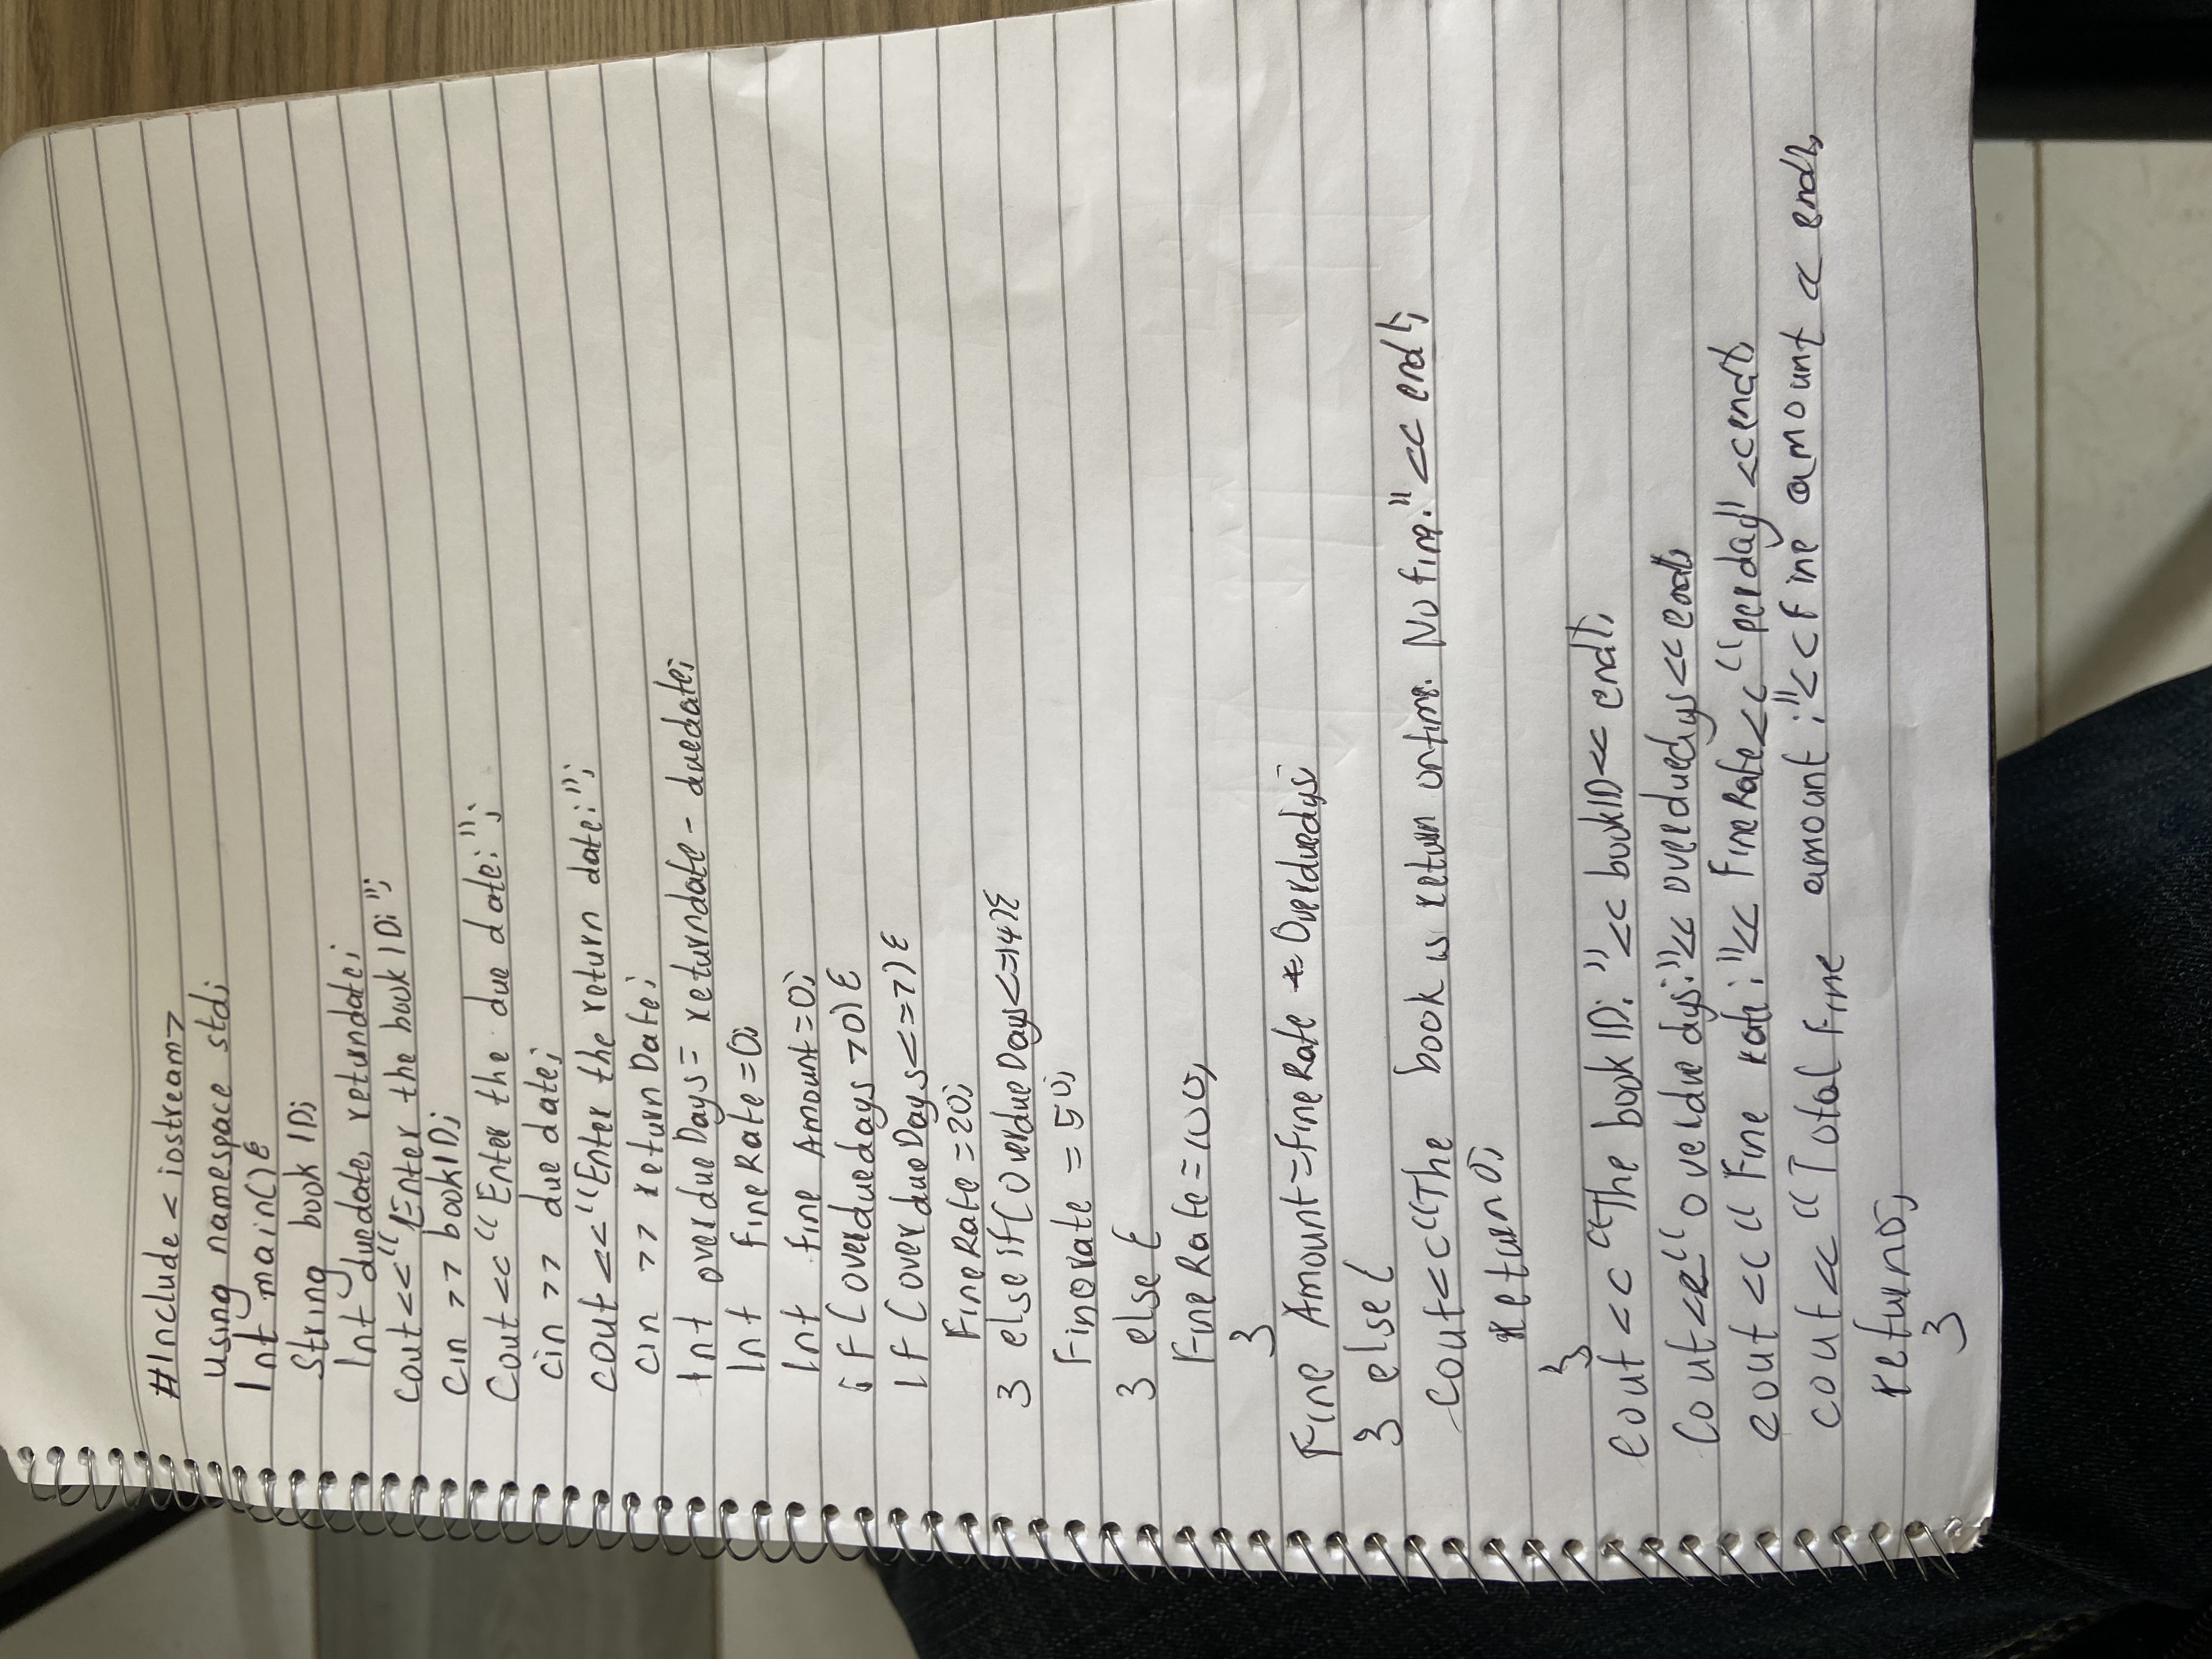 #Include < iostream>
using namespace std;
Int main(){
String book ID;
Int duedate, returndate;
cout<<"Enter the book ID: ";
cin >> bookID;
Cout<<"Enter the due date: ";
cin >> due date;
cout <<"Enter the return date: ";
cin >> returnDate;
Int overdueDays= returndate - duedate;
Int fineRate=0;
Int fine Amount=0;
if (overduedays >0) {
If (overdueDays<=7) {
FineRate =20;
} else if( OverdueDays<=14){
Finerate = 50;
} else {
FineRate=100;
}
Fine Amount=fineRate * Overduedys;
} else {
cout<<"The book is return ontime. No fine." << endl;
return 0;
}
cout << "The book ID: "<< bookID<< endl;
Cout<<"overdue dys:"<< overduedys<< endl;
cout << " Fine rate: "<< FineRate<< "per day" << endl;
cout<< "Total Fine amount : "<<fine amount << endl;
return 0;
}